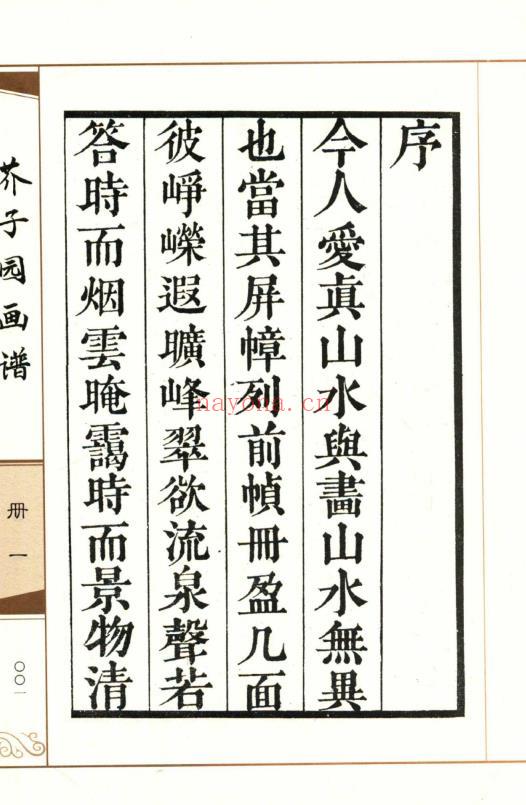 序
今人愛眞山水與畫山水無異
也當其屏幛列前幀冊盈几面
彼崢嶸遐曠峰翠欲流泉聲若
答時而烟雲晻靄時而景物清
芥子园画谱
册一
〇〇一
nayona.cn